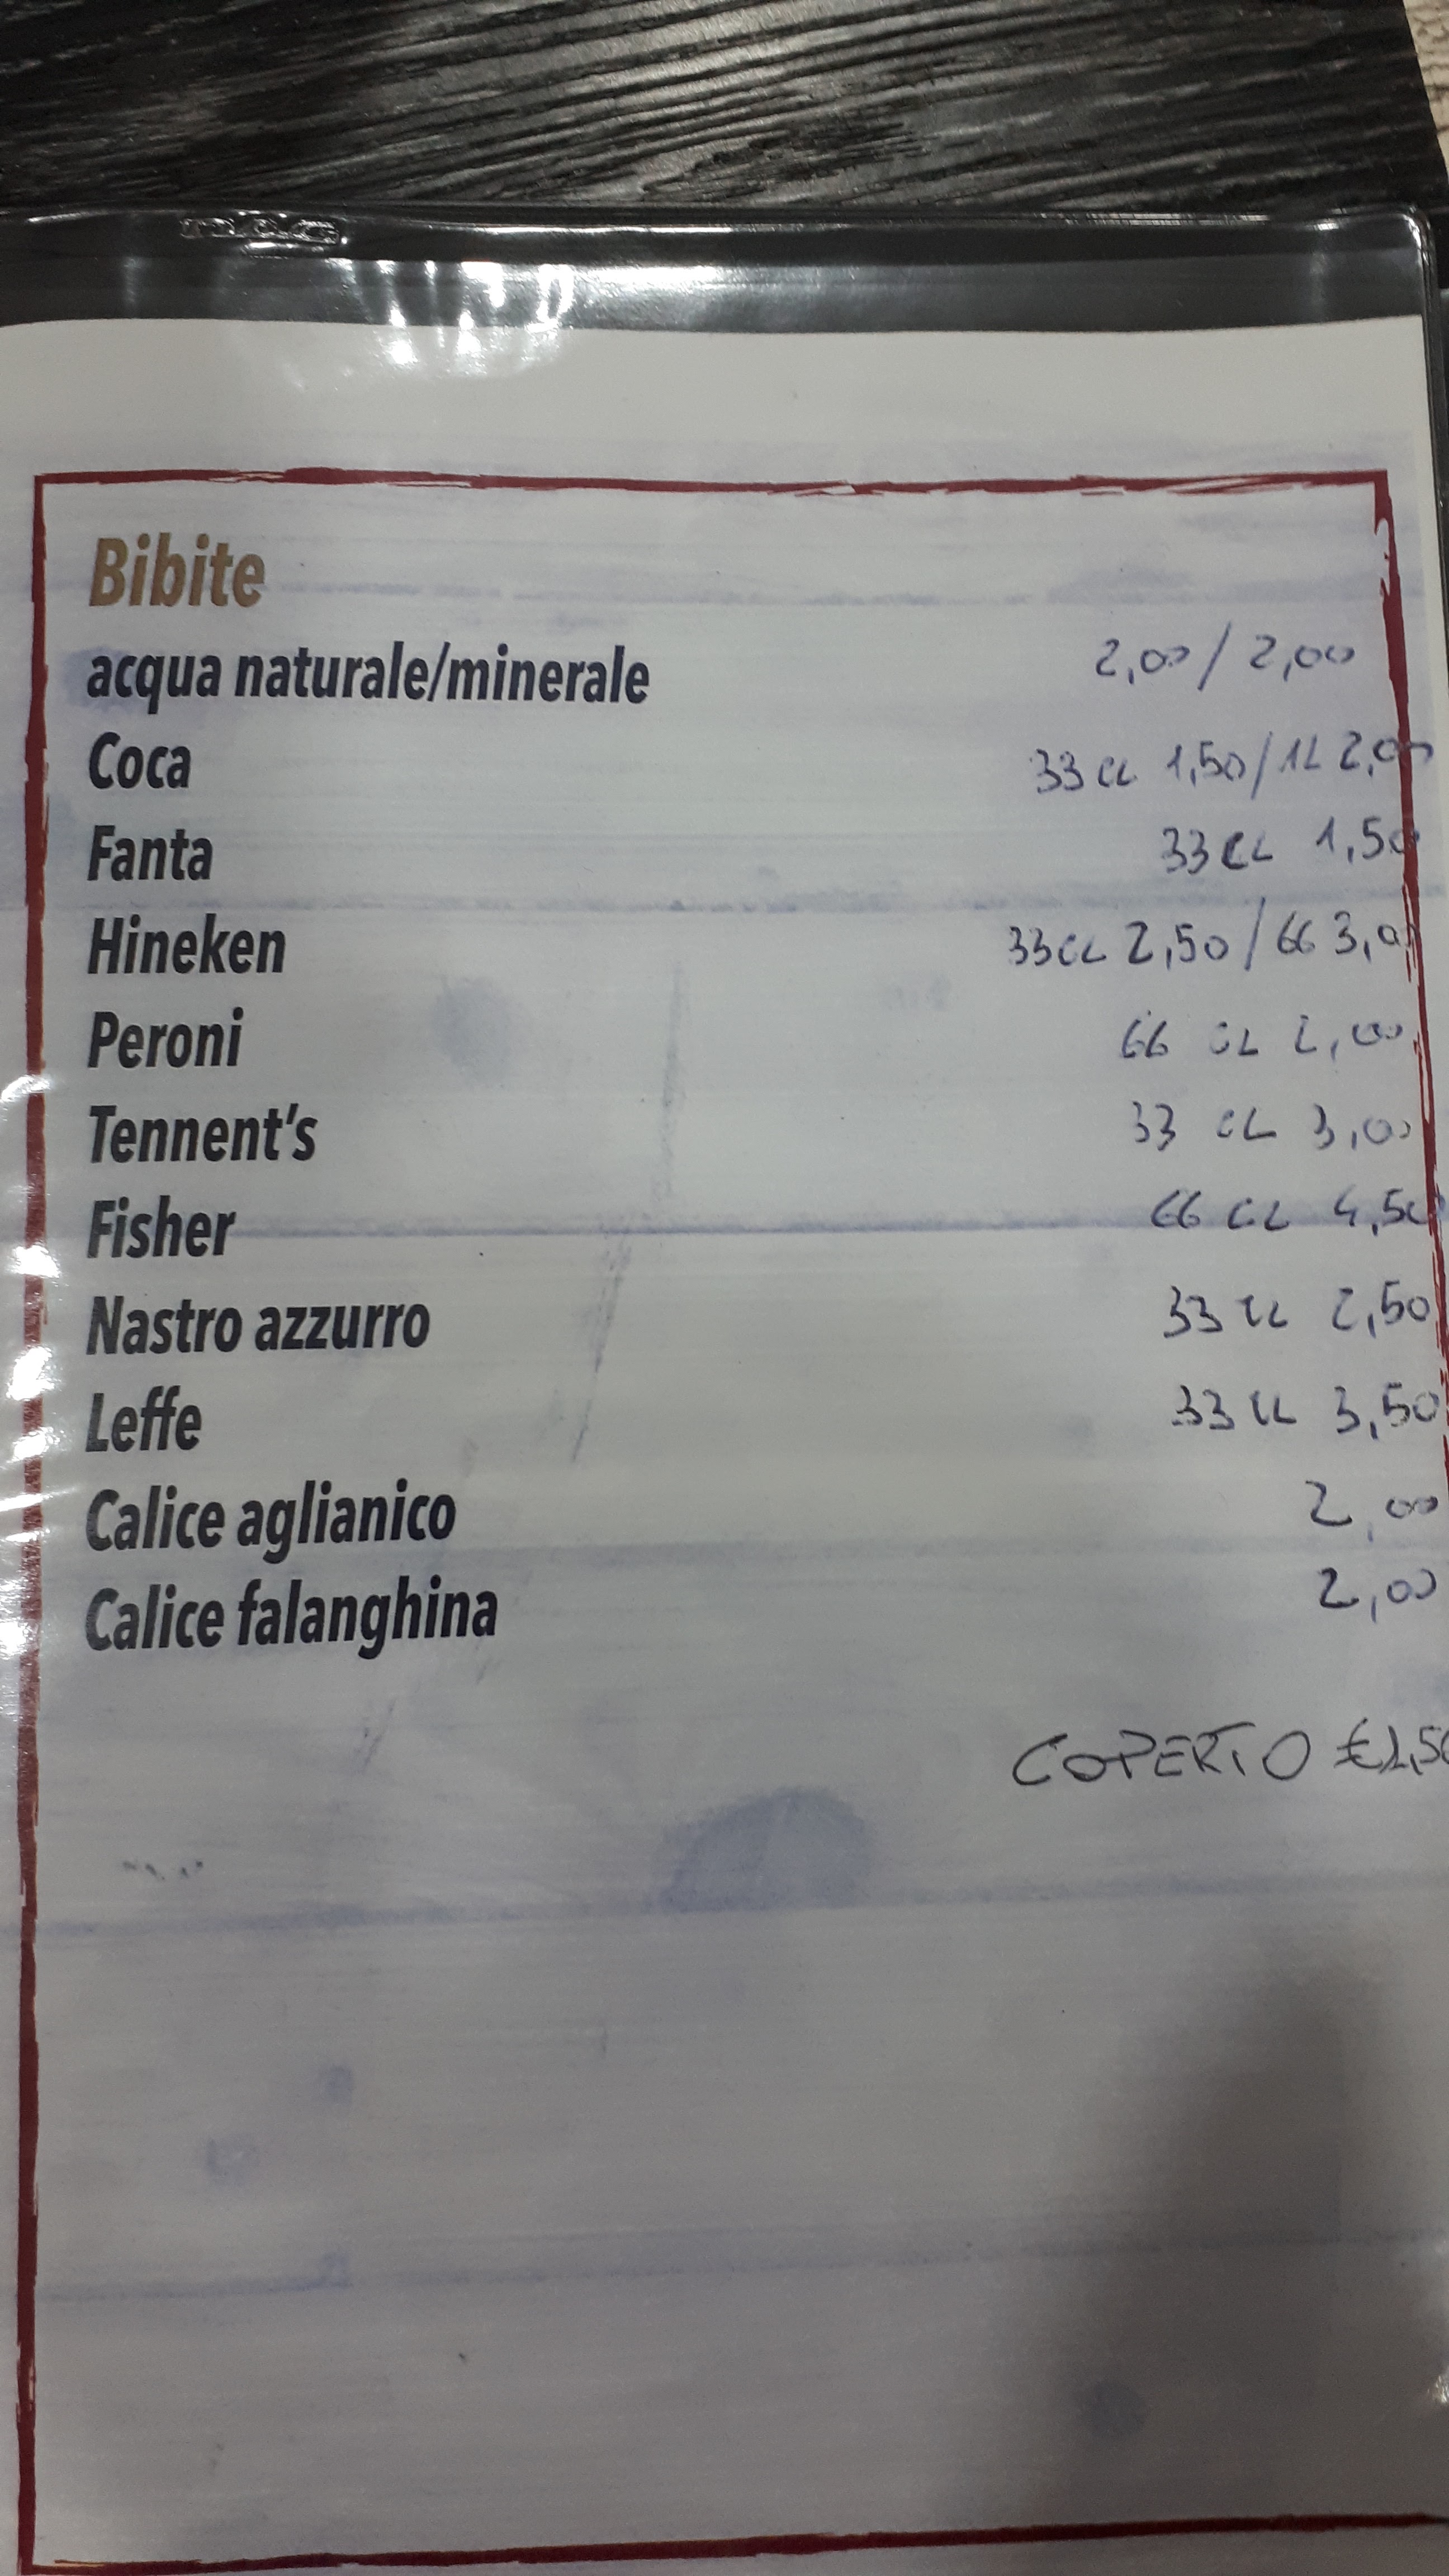 Bibite
acqua naturale/minerale 2,00 / 2,00
Coca 33 CL 1,50 / 1L 2,00
Fanta 33 CL 1,50
Hineken 33 CL 2,50 / 66 3,00
Peroni 66 CL 2,00
Tennent's 33 CL 3,00
Fisher 66 CL 4,50
Nastro azzurro 33 CL 2,50
Leffe 33 CL 3,50
Calice aglianico 2,00
Calice falanghina 2,00
COPERTO €1,50